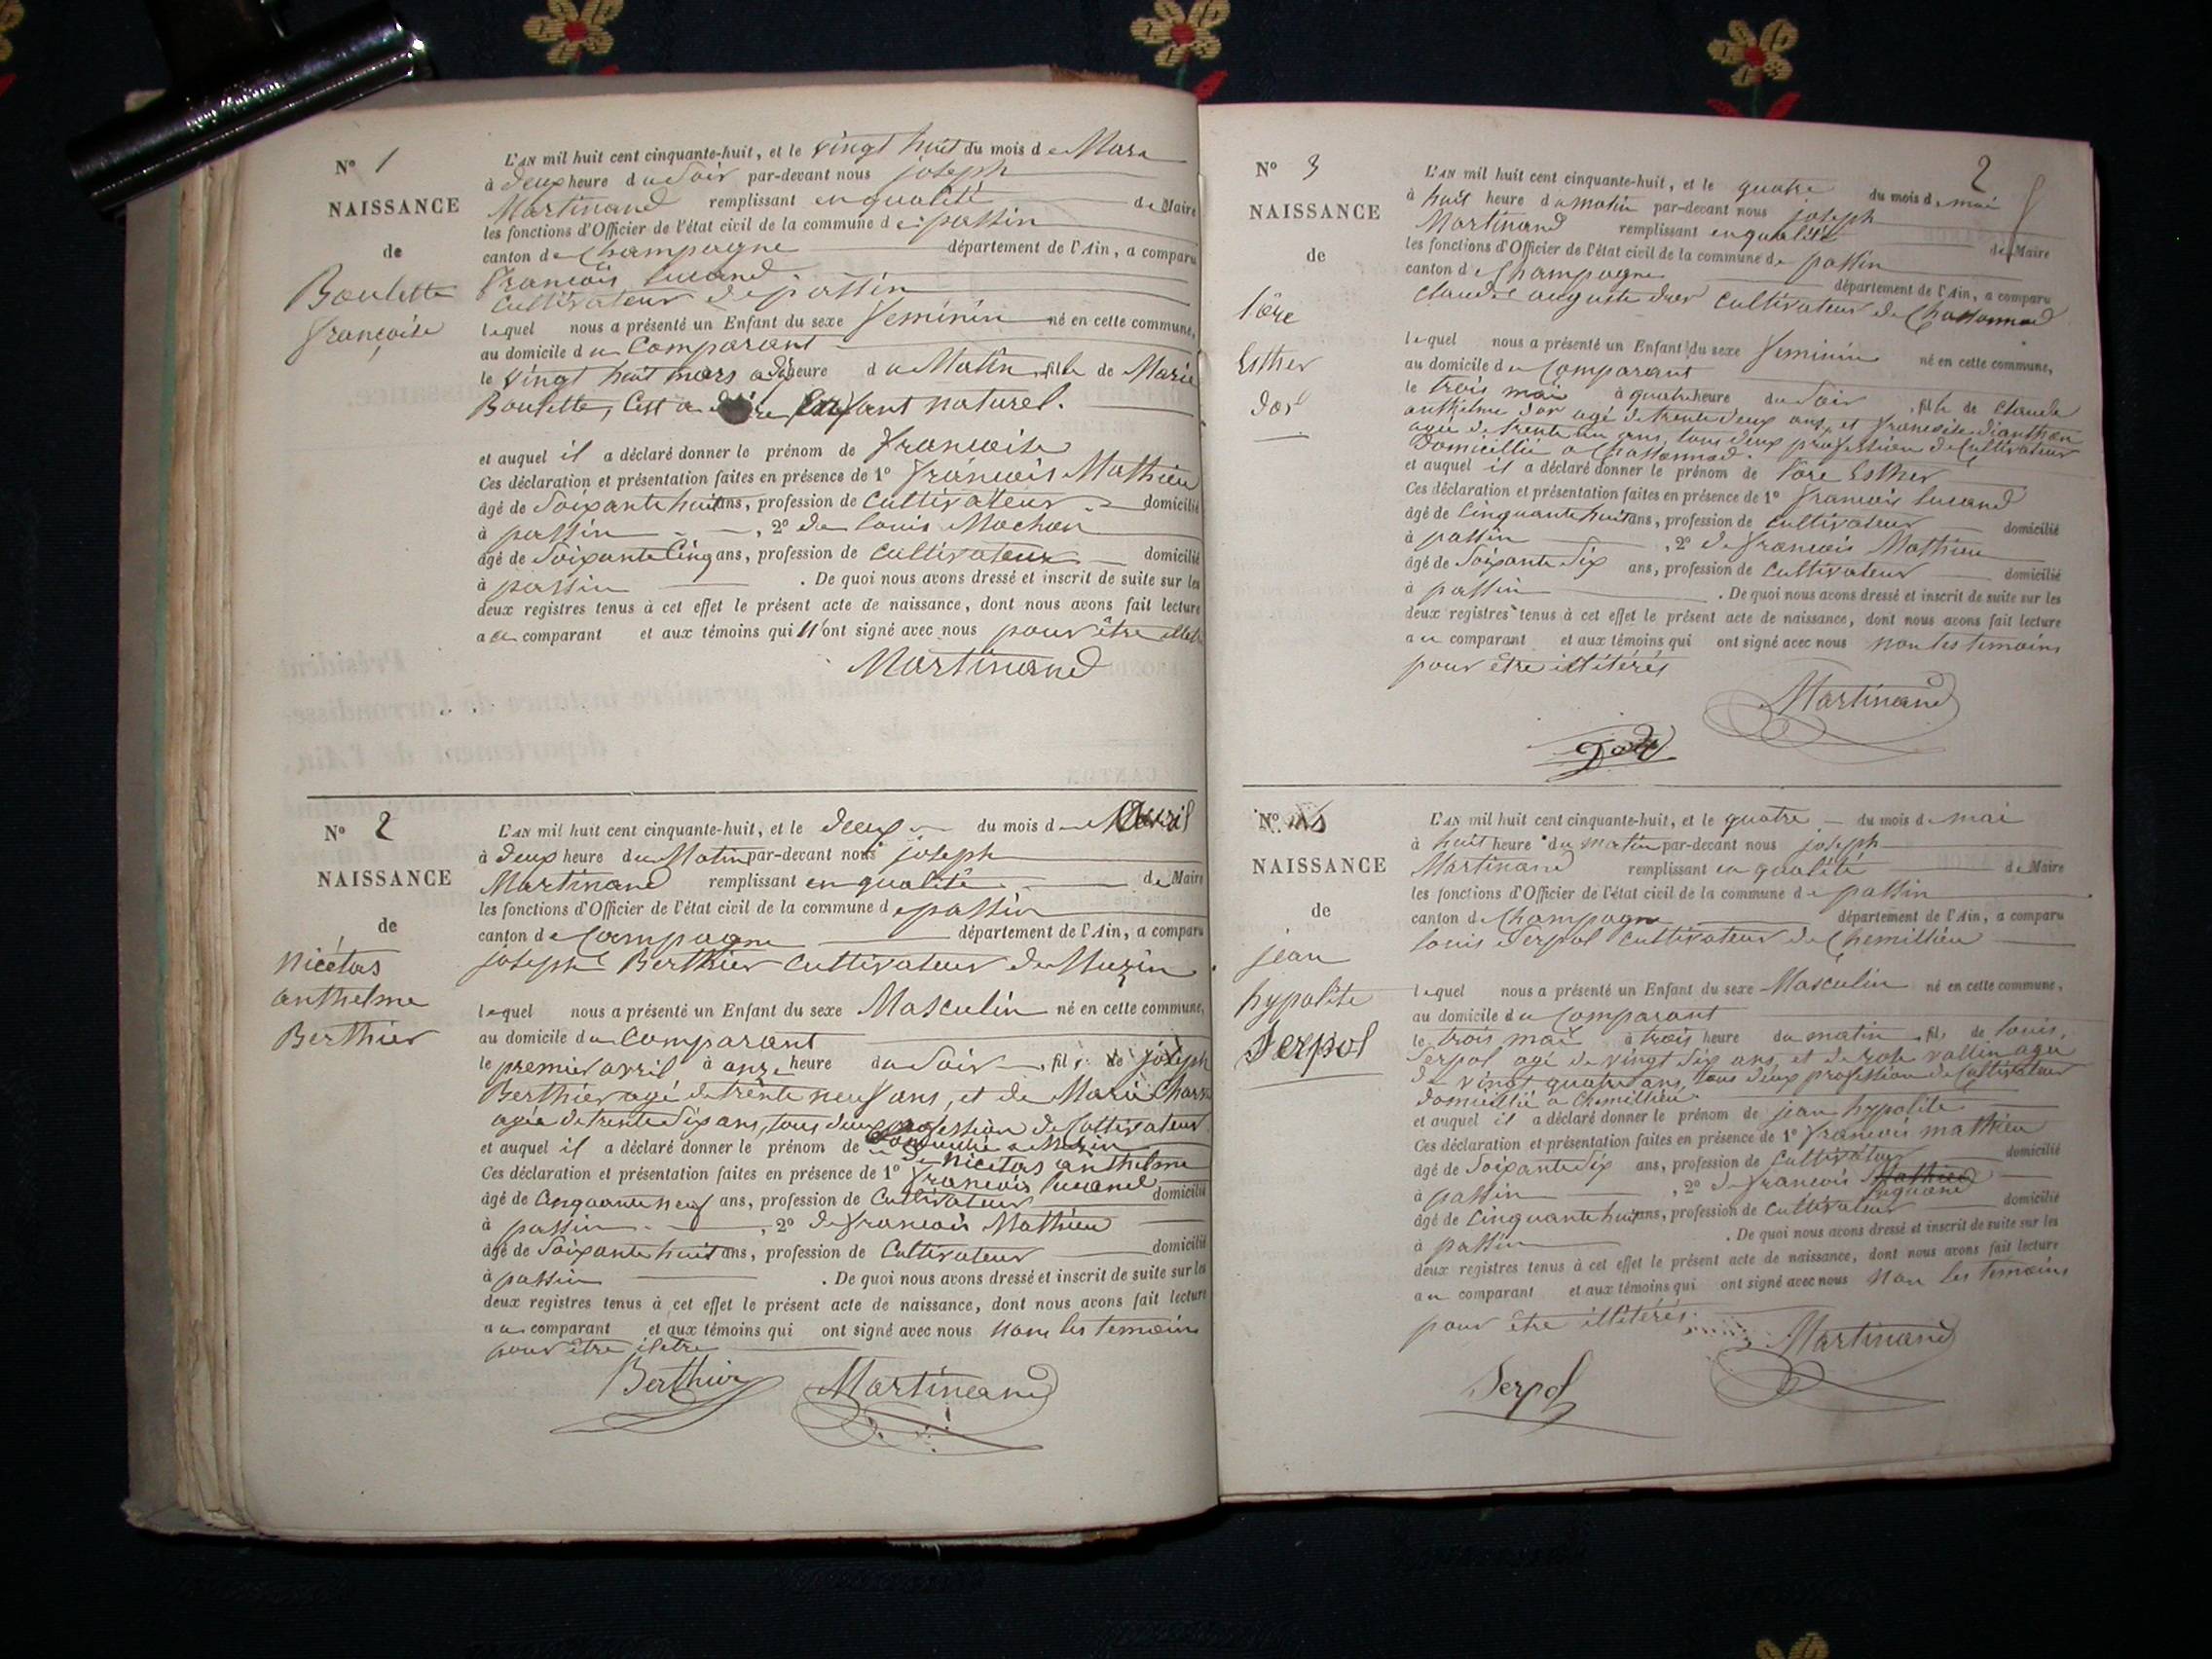 N° 1
NAISSANCE
de
Boulette
françoise
L'AN mil huit cent cinquante-huit, et le vingt huit du mois de Mars
à deux heure du Soir par-devant nous joseph
Martinand remplissant en qualité de Maire
les fonctions d'Officier de l'état civil de la commune de passin
canton de Champagne département de l'Ain, a comparu
francois lucand
Cultivateur de passin
lequel nous a présenté un Enfant du sexe feminin né en cette commune,
au domicile du Comparant
le vingt huit mars à heure du Matin, fille de Marie
Boulette, C'est a dire Enfant naturel.
et auquel il a déclaré donner le prénom de francoise
Ces déclaration et présentation faites en présence de 1° francois Mathieu
âgé de Soixante huit ans, profession de Cultivateur domicilié
à passin, 2° de louis Mochon
âgé de Soixante Cinq ans, profession de Cultivateur domicilié
à passin. De quoi nous avons dressé et inscrit de suite sur les
deux registres tenus à cet effet le présent acte de naissance, dont nous avons fait lecture
au comparant et aux témoins qui n'ont signé avec nous pour être
Martinand
N° 2
NAISSANCE
de
Nicétas
anthelme
Berthier
L'AN mil huit cent cinquante-huit, et le deux du mois d Avril
à deux heure du Matin par-devant nous joseph
Martinand remplissant en qualité de Maire
les fonctions d'Officier de l'état civil de la commune de passin
canton de Campagne département de l'Ain, a comparu
joseph Berthier Cultivateur de Muzin
lequel nous a présenté un Enfant du sexe Masculin né en cette commune,
au domicile du Comparant
le premier avril à onze heure du Soir, fils de joseph
Berthier agé de trente neuf ans, et de Marie
agée de trente Six ans, tous deux profession de Cultivateur
et auquel il a déclaré donner le prénom de
Nicétas anthelme
Ces déclaration et présentation faites en présence de 1° francois lucand
âgé de Cinquante neuf ans, profession de Cultivateur domicilié
à passin, 2° de francois Mathieu
âgé de Soixante huit ans, profession de Cultivateur domicilié
à passin. De quoi nous avons dressé et inscrit de suite sur les
deux registres tenus à cet effet le présent acte de naissance, dont nous avons fait lecture
au comparant et aux témoins qui ont signé avec nous Non les temoins
pour être
Berthier Martinand
2
N° 3
NAISSANCE
de
lore
Esther
L'AN mil huit cent cinquante-huit, et le quatre du mois de mai
à huit heure du matin par-devant nous joseph
Martinand remplissant en qualité de Maire
les fonctions d'Officier de l'état civil de la commune de passin
canton de Champagne département de l'Ain, a comparu
auguste Cultivateur de Chassonnod
lequel nous a présenté un Enfant du sexe feminin né en cette commune,
au domicile du Comparant
le trois mai à quatre heure du Soir, fille de Claude
anthelme dor agé de trente deux ans, et francoise
agée de trente un ans, tous deux profession de Cultivateur
Domicillié a Chassonnod.
et auquel il a déclaré donner le prénom de lore Esther
Ces déclaration et présentation faites en présence de 1° francois lucand
âgé de Cinquante huit ans, profession de Cultivateur domicilié
à passin, 2° de francois Mathieu
âgé de Soixante Six ans, profession de Cultivateur domicilié
à passin. De quoi nous avons dressé et inscrit de suite sur les
deux registres tenus à cet effet le présent acte de naissance, dont nous avons fait lecture
au comparant et aux témoins qui ont signé avec nous Non les temoins
pour être illitérés
Martinand
N°
NAISSANCE
de
jean
hypolite
Serpol
L'AN mil huit cent cinquante-huit, et le quatre du mois de mai
à huit heure du matin par-devant nous joseph
Martinand remplissant en qualité de Maire
les fonctions d'Officier de l'état civil de la commune de passin
canton de Champagne département de l'Ain, a comparu
louis Serpol Cultivateur de Chemillieu
lequel nous a présenté un Enfant du sexe Masculin né en cette commune,
au domicile du Comparant
le trois mai à trois heure du matin, fils de louis
Serpol agé de vingt Six ans, et de vallin agée
de vingt quatre ans, tous deux profession de Cultivateur
domicillié a Chemillieu
et auquel il a déclaré donner le prénom de jean hypolite
Ces déclaration et présentation faites en présence de 1° francois mathieu
âgé de Soixante Six ans, profession de Cultivateur domicilié
à passin, 2° de francois Mathieu
âgé de Cinquante huit ans, profession de Cultivateur domicilié
à passin. De quoi nous avons dressé et inscrit de suite sur les
deux registres tenus à cet effet le présent acte de naissance, dont nous avons fait lecture
au comparant et aux témoins qui ont signé avec nous Non les temoins
pour être illitérés
Martinand
Serpol